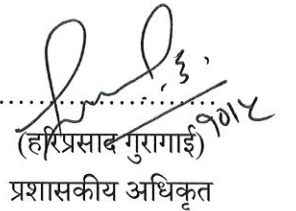 ........................
(हरिप्रसाद गुरागाई)
प्रशासकीय अधिकृत